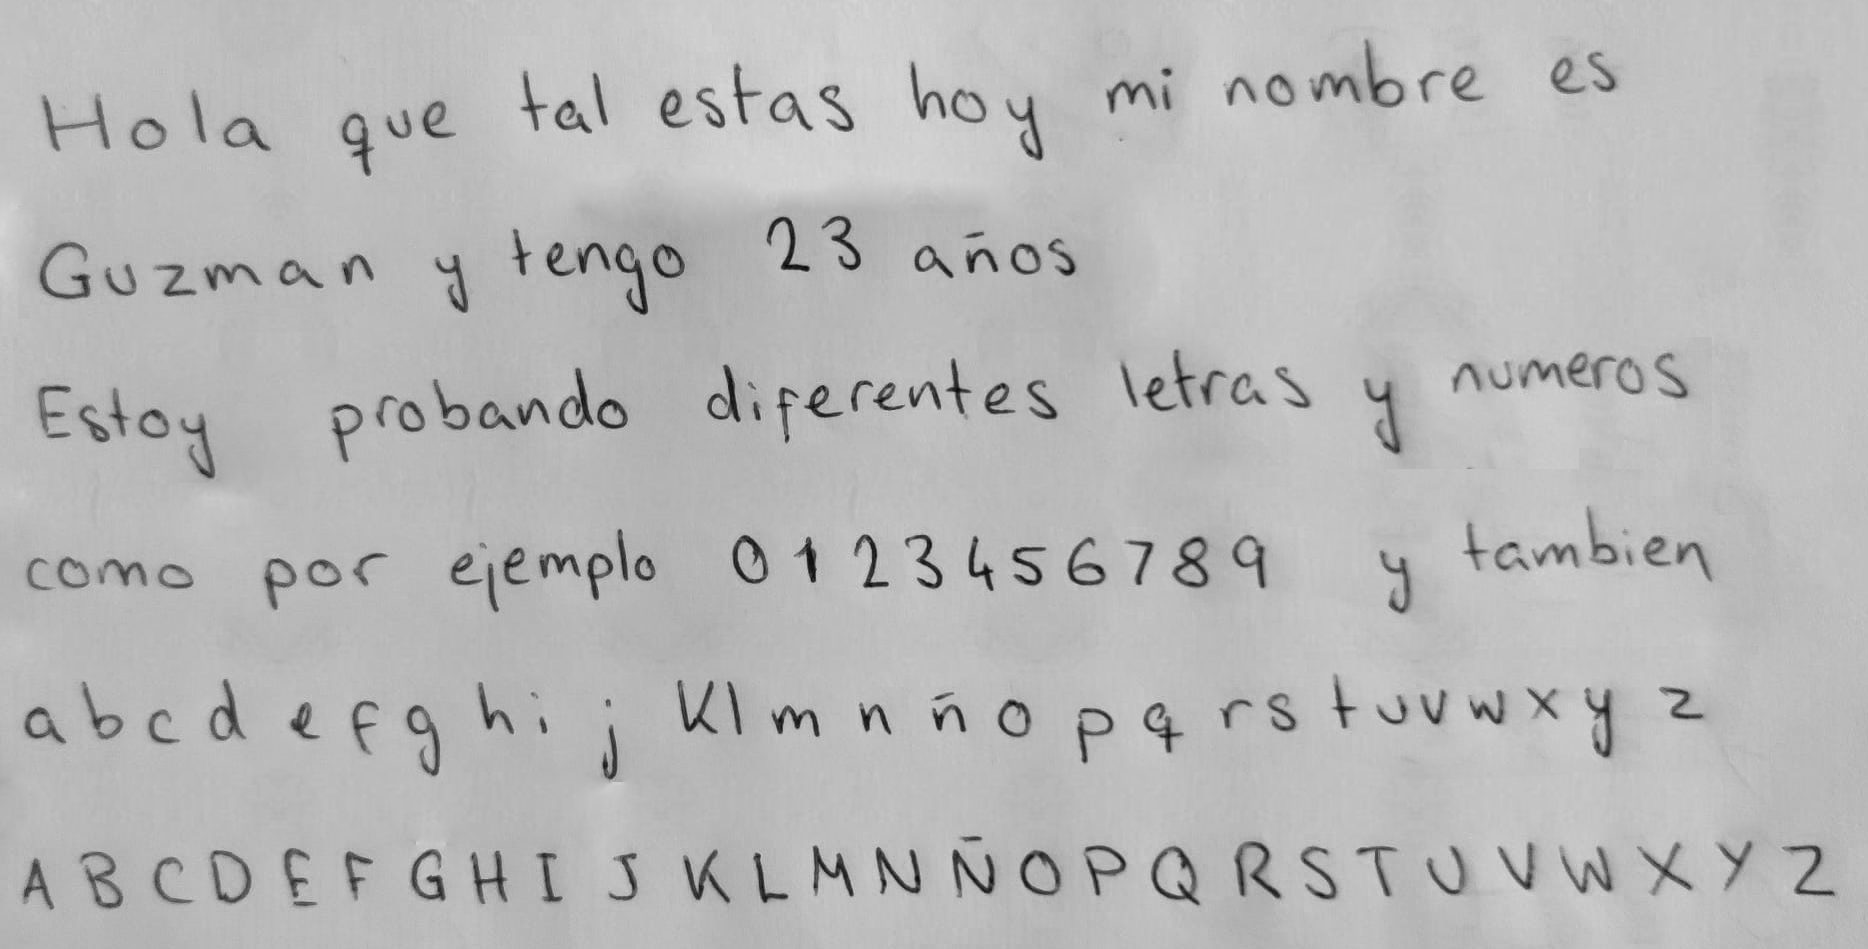 Hola que tal estas hoy mi nombre es
Guzman y tengo 23 años
Estoy probando diferentes letras y numeros
como por ejemplo 0 1 2 3 4 5 6 7 8 9 y tambien
a b c d e f g h i j k l m n ñ o p q r s t u v w x y z
A B C D E F G H I J K L M N Ñ O P Q R S T U V W X Y Z